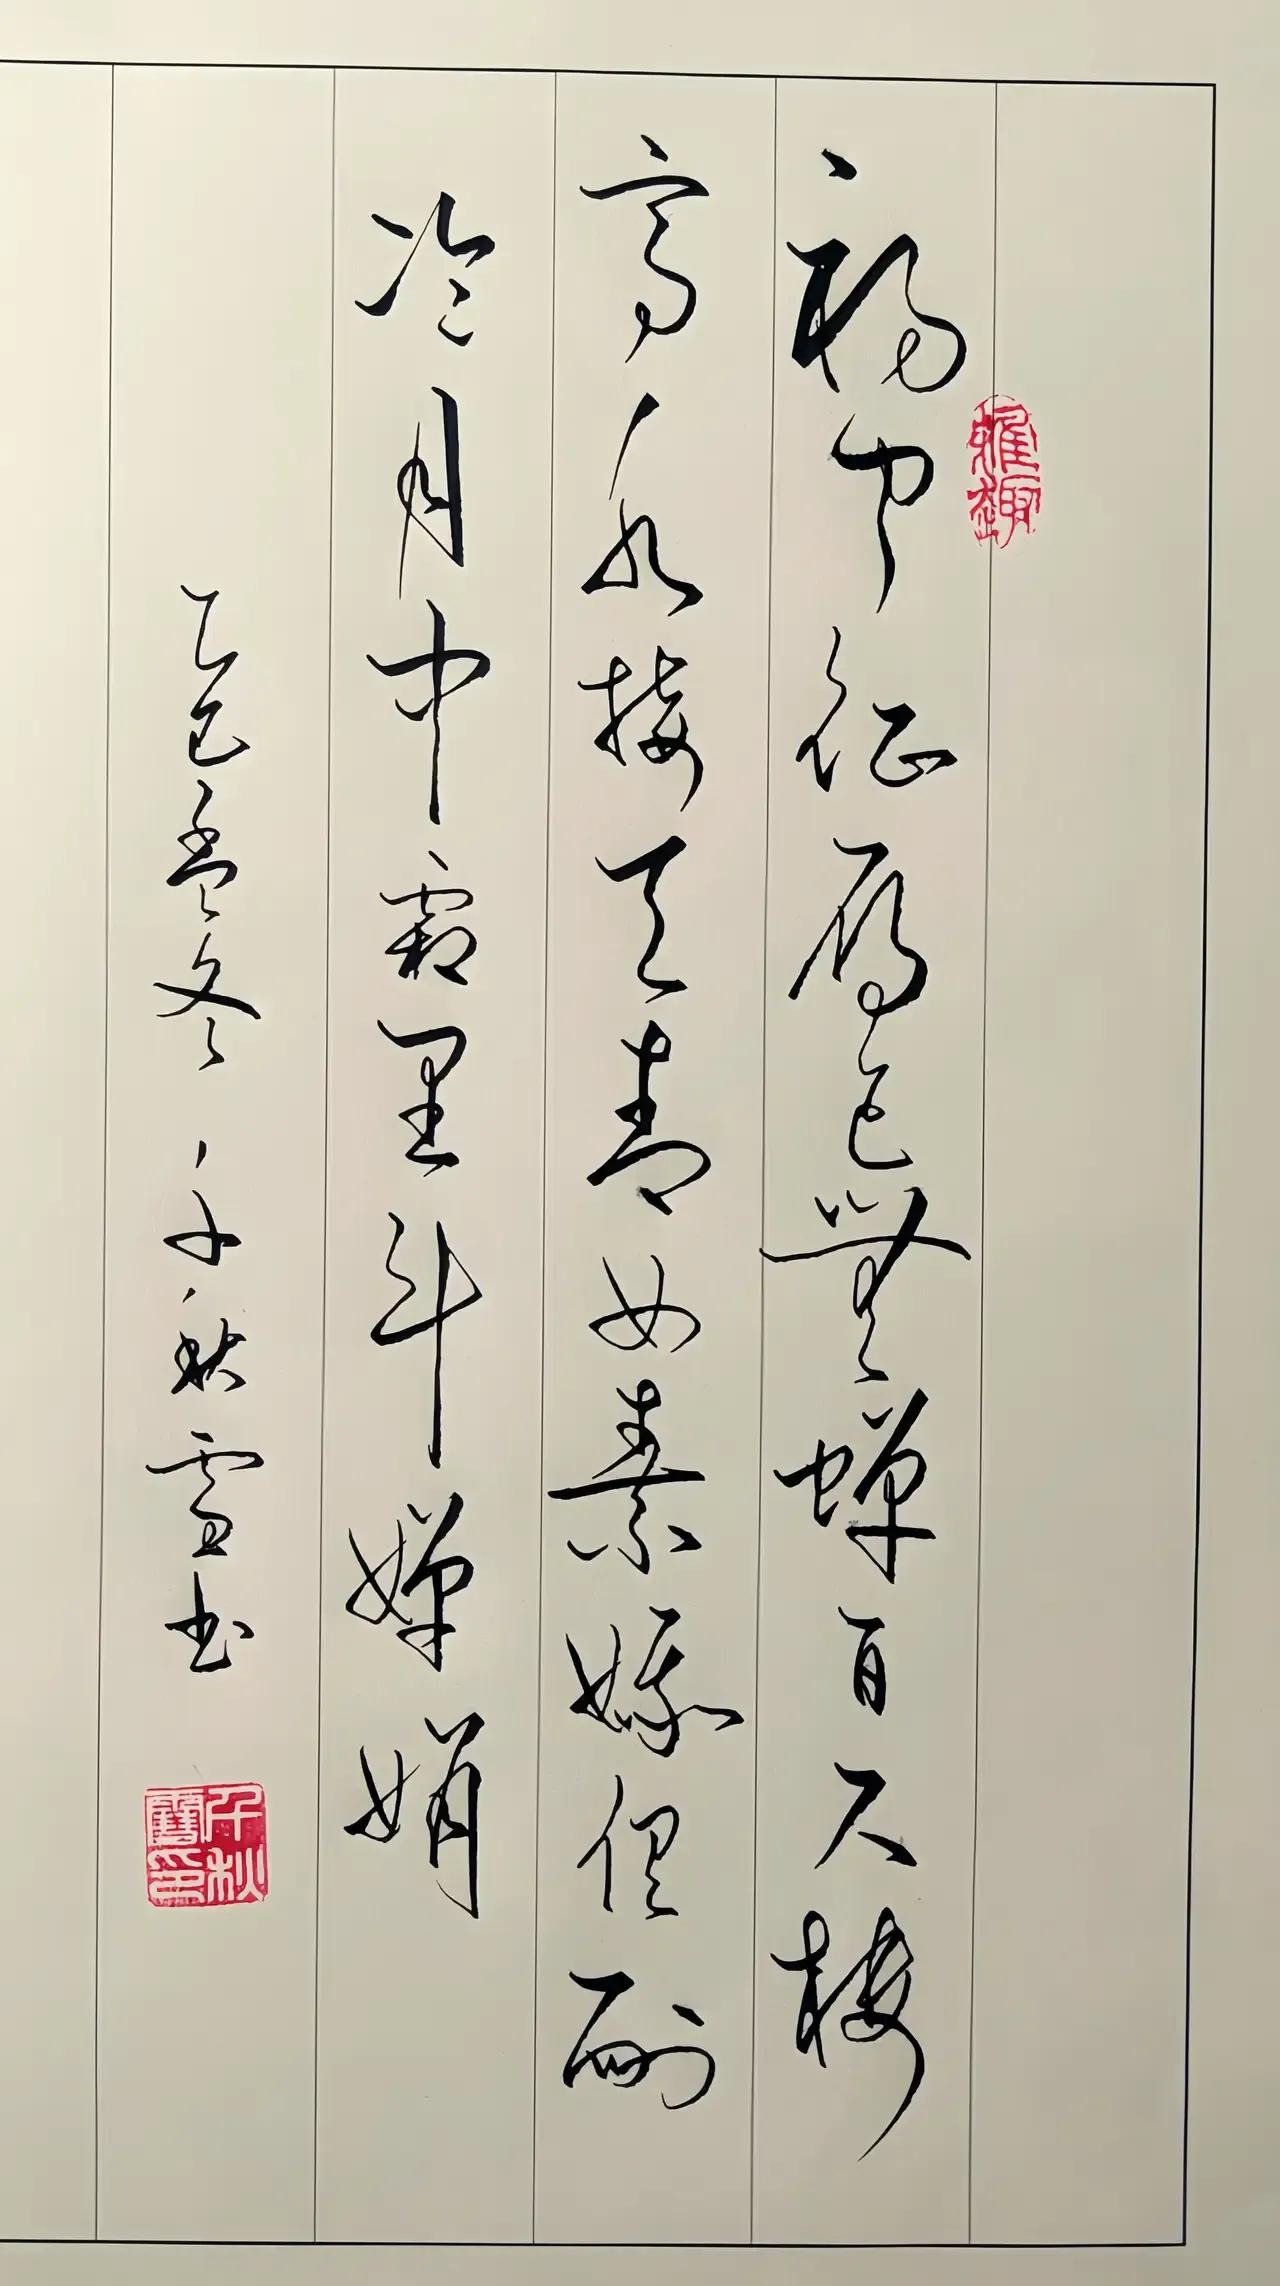 雅趣
初闻征雁已無蝉百尺楼
高水接天青女素娥俱耐
冷月中霜里斗婵娟
乙巳孟冬 千秋雪书
千秋雪印